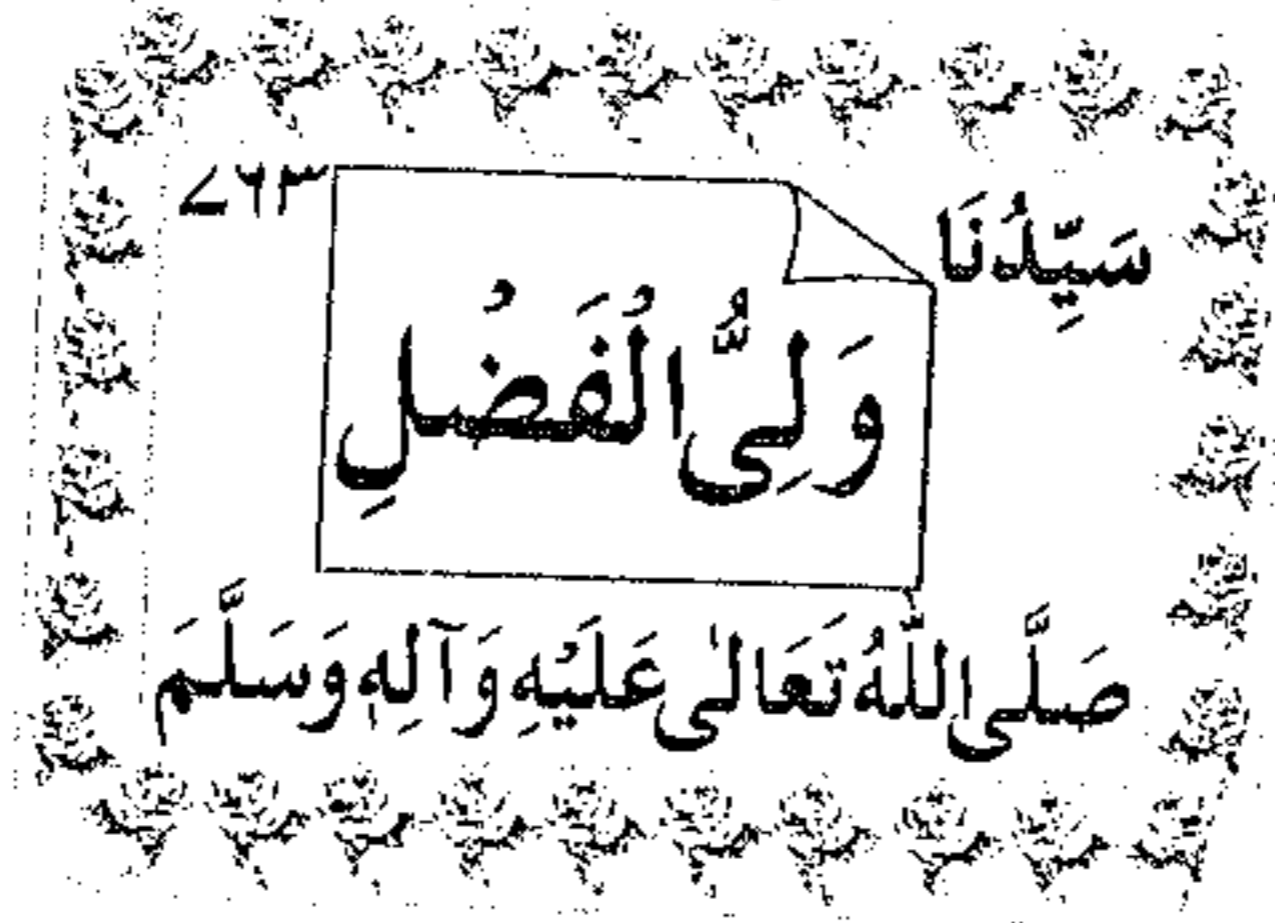 ۷۶۳
سَيِّدُنَا
وَلِيُّ الْفَضْلِ
صَلَّى اللّٰهُ تَعَالٰى عَلَيْهِ وَآلِهٖ وَسَلَّمَ